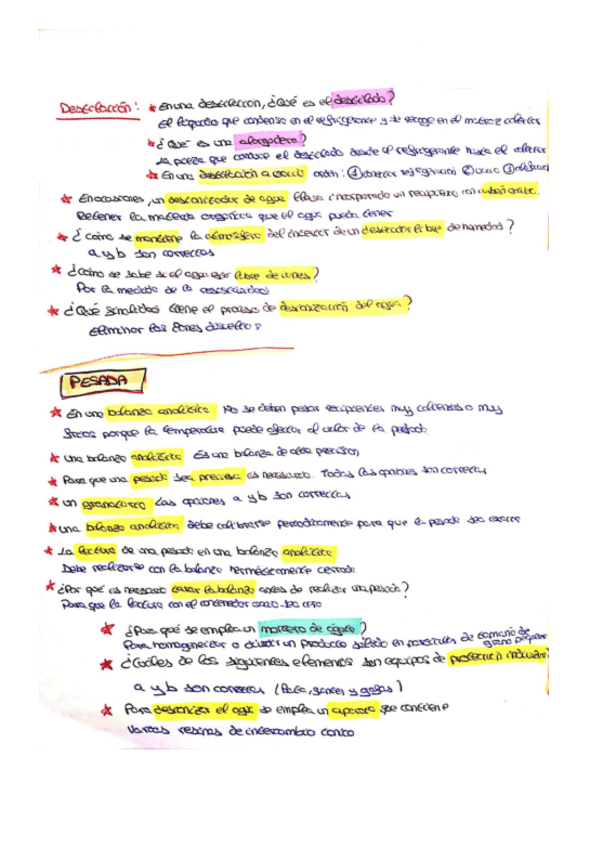 Destilación: * En una destilación, ¿Qué es el destilado?
El líquido que condensa en el refrigerante y se recoge en el matraz colector
* ¿Qué es una alargadera?
La pieza que conduce el destilado desde el refrigerante hasta el colector
* En una destilación a vacío orden: ① conectar refrigeración ② vacío ③
* En ocasiones, un desionizador de agua lleva incorporado un recipiente con carbón activo.
Retener la materia orgánica que el agua pueda tener
* ¿Cómo se mantiene la atmósfera del interior de un desecador libre de humedad?
a y b son correctas
* ¿Cómo se sabe si el agua está libre de iones?
Por la medida de la resistividad
* ¿Qué finalidad tiene el proceso de desionización del agua?
Eliminar los iones disueltos
PESADA
* En una balanza analítica No se deben pesar recipientes muy calientes o muy
fríos porque la temperatura puede afectar el valor de la pesada
* Una balanza analítica Es una balanza de alta precisión
* Para que una pesada sea precisa es necesario. Todas las opciones son correctas
* Un granatario Las opciones a y b son correctas
* Una balanza analítica debe calibrarse periódicamente para que la pesada sea exacta
* La lectura de una pesada en una balanza analítica
Debe realizarse con la balanza herméticamente cerrada
* ¿Por qué es necesario tarar la balanza antes de realizar una pesada?
Para que la lectura con el contenedor vacío sea cero
* ¿Para qué se emplea un mortero de ágata?
Para homogeneizar o dividir un producto sólido en partículas de tamaño de grano pequeño
* ¿Cuáles de los siguientes elementos son equipos de protección individual?
a y b son correctas (Bata, guantes y gafas)
* Para desionizar el agua se emplea un aparato que contiene
Varias resinas de intercambio iónico